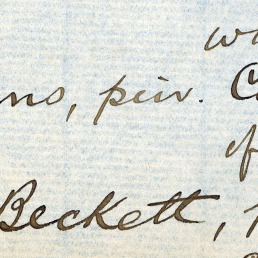 w
ns, piiv. C
of
Beckett, p